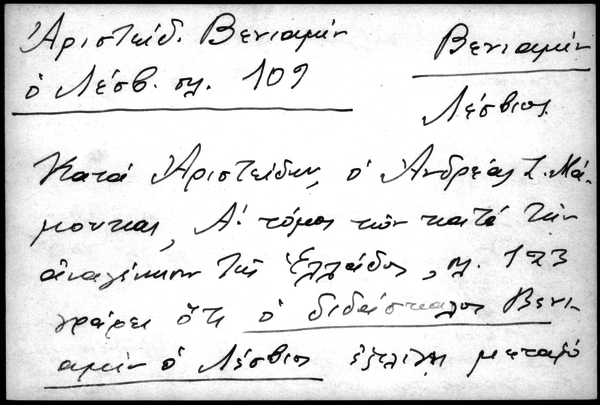 Ἀριστείδ. Βενιαμίν
ὁ Λέσβ. σλ. 109
Βενιαμίν
Λέσβιος
Κατά Ἀριστείδην, ὁ Ἀνδρέας Ζ. Μά-
μουκας, Α΄ τόμος τῶν κατά τήν
ἀναγέννησιν τῆς Ἑλλάδος, σλ. 123
γράφει ὅτι ὁ διδάσκαλος Βενι-
αμίν ὁ Λέσβιος ἐξελέγη μεταξύ